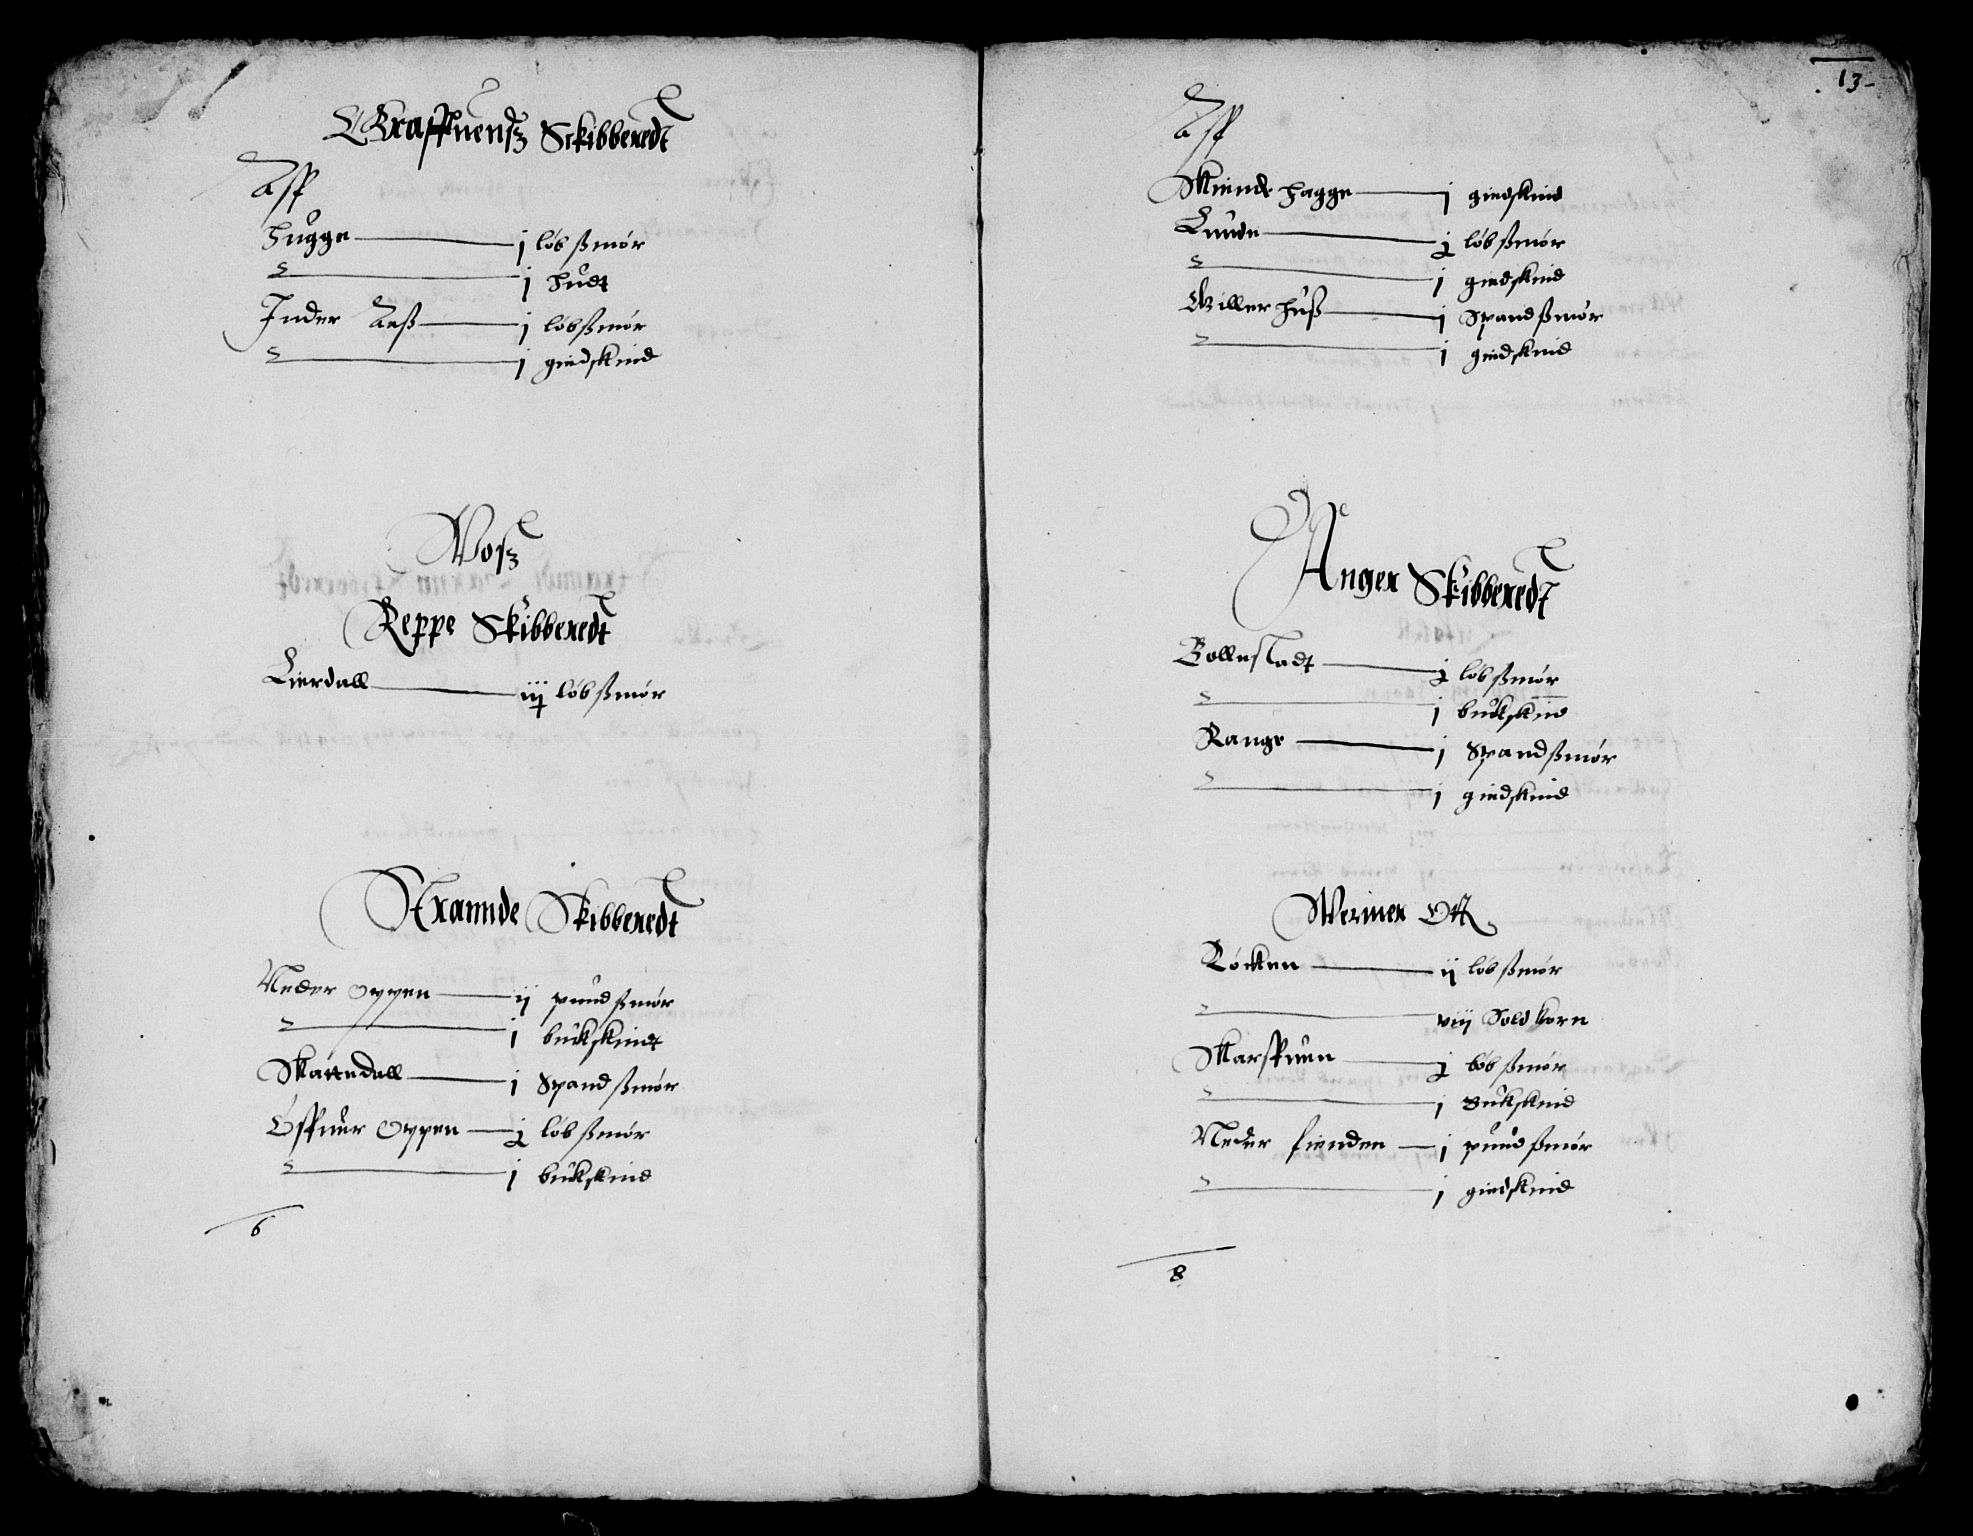 Graffuensz Sckibberedt
Aff
Hugge — j løb smør
" — j hudt
Inder Aaß — j løb smør
" — j giedskind
Vosz
Reppe Skibberedt
Lierdall — iij løb smør
Framnde Skibberedt
Neder Oppen — ij pund smør
" — j buckskindt
Skattedall — j Spand smør
Offuer Oppen — j løb smør
" — j buckskind
6
13
Aff
Miende hagge — j giedskind
Lunde — j løb smør
" — j giedskind
Giller huß — j Spand smør
" — j giedskind
Anger Skibberedt
Bollestadt — j løb smør
" — j buckskind
Range — j Spand smør
" — j giedskind
Weriner Ott
Røcken — ij løb smør
" — viij Sold korn
Marsffuen — j løb smør
" — j Buckskind
Neder fienden — j pund smør
" — j giedskind
8